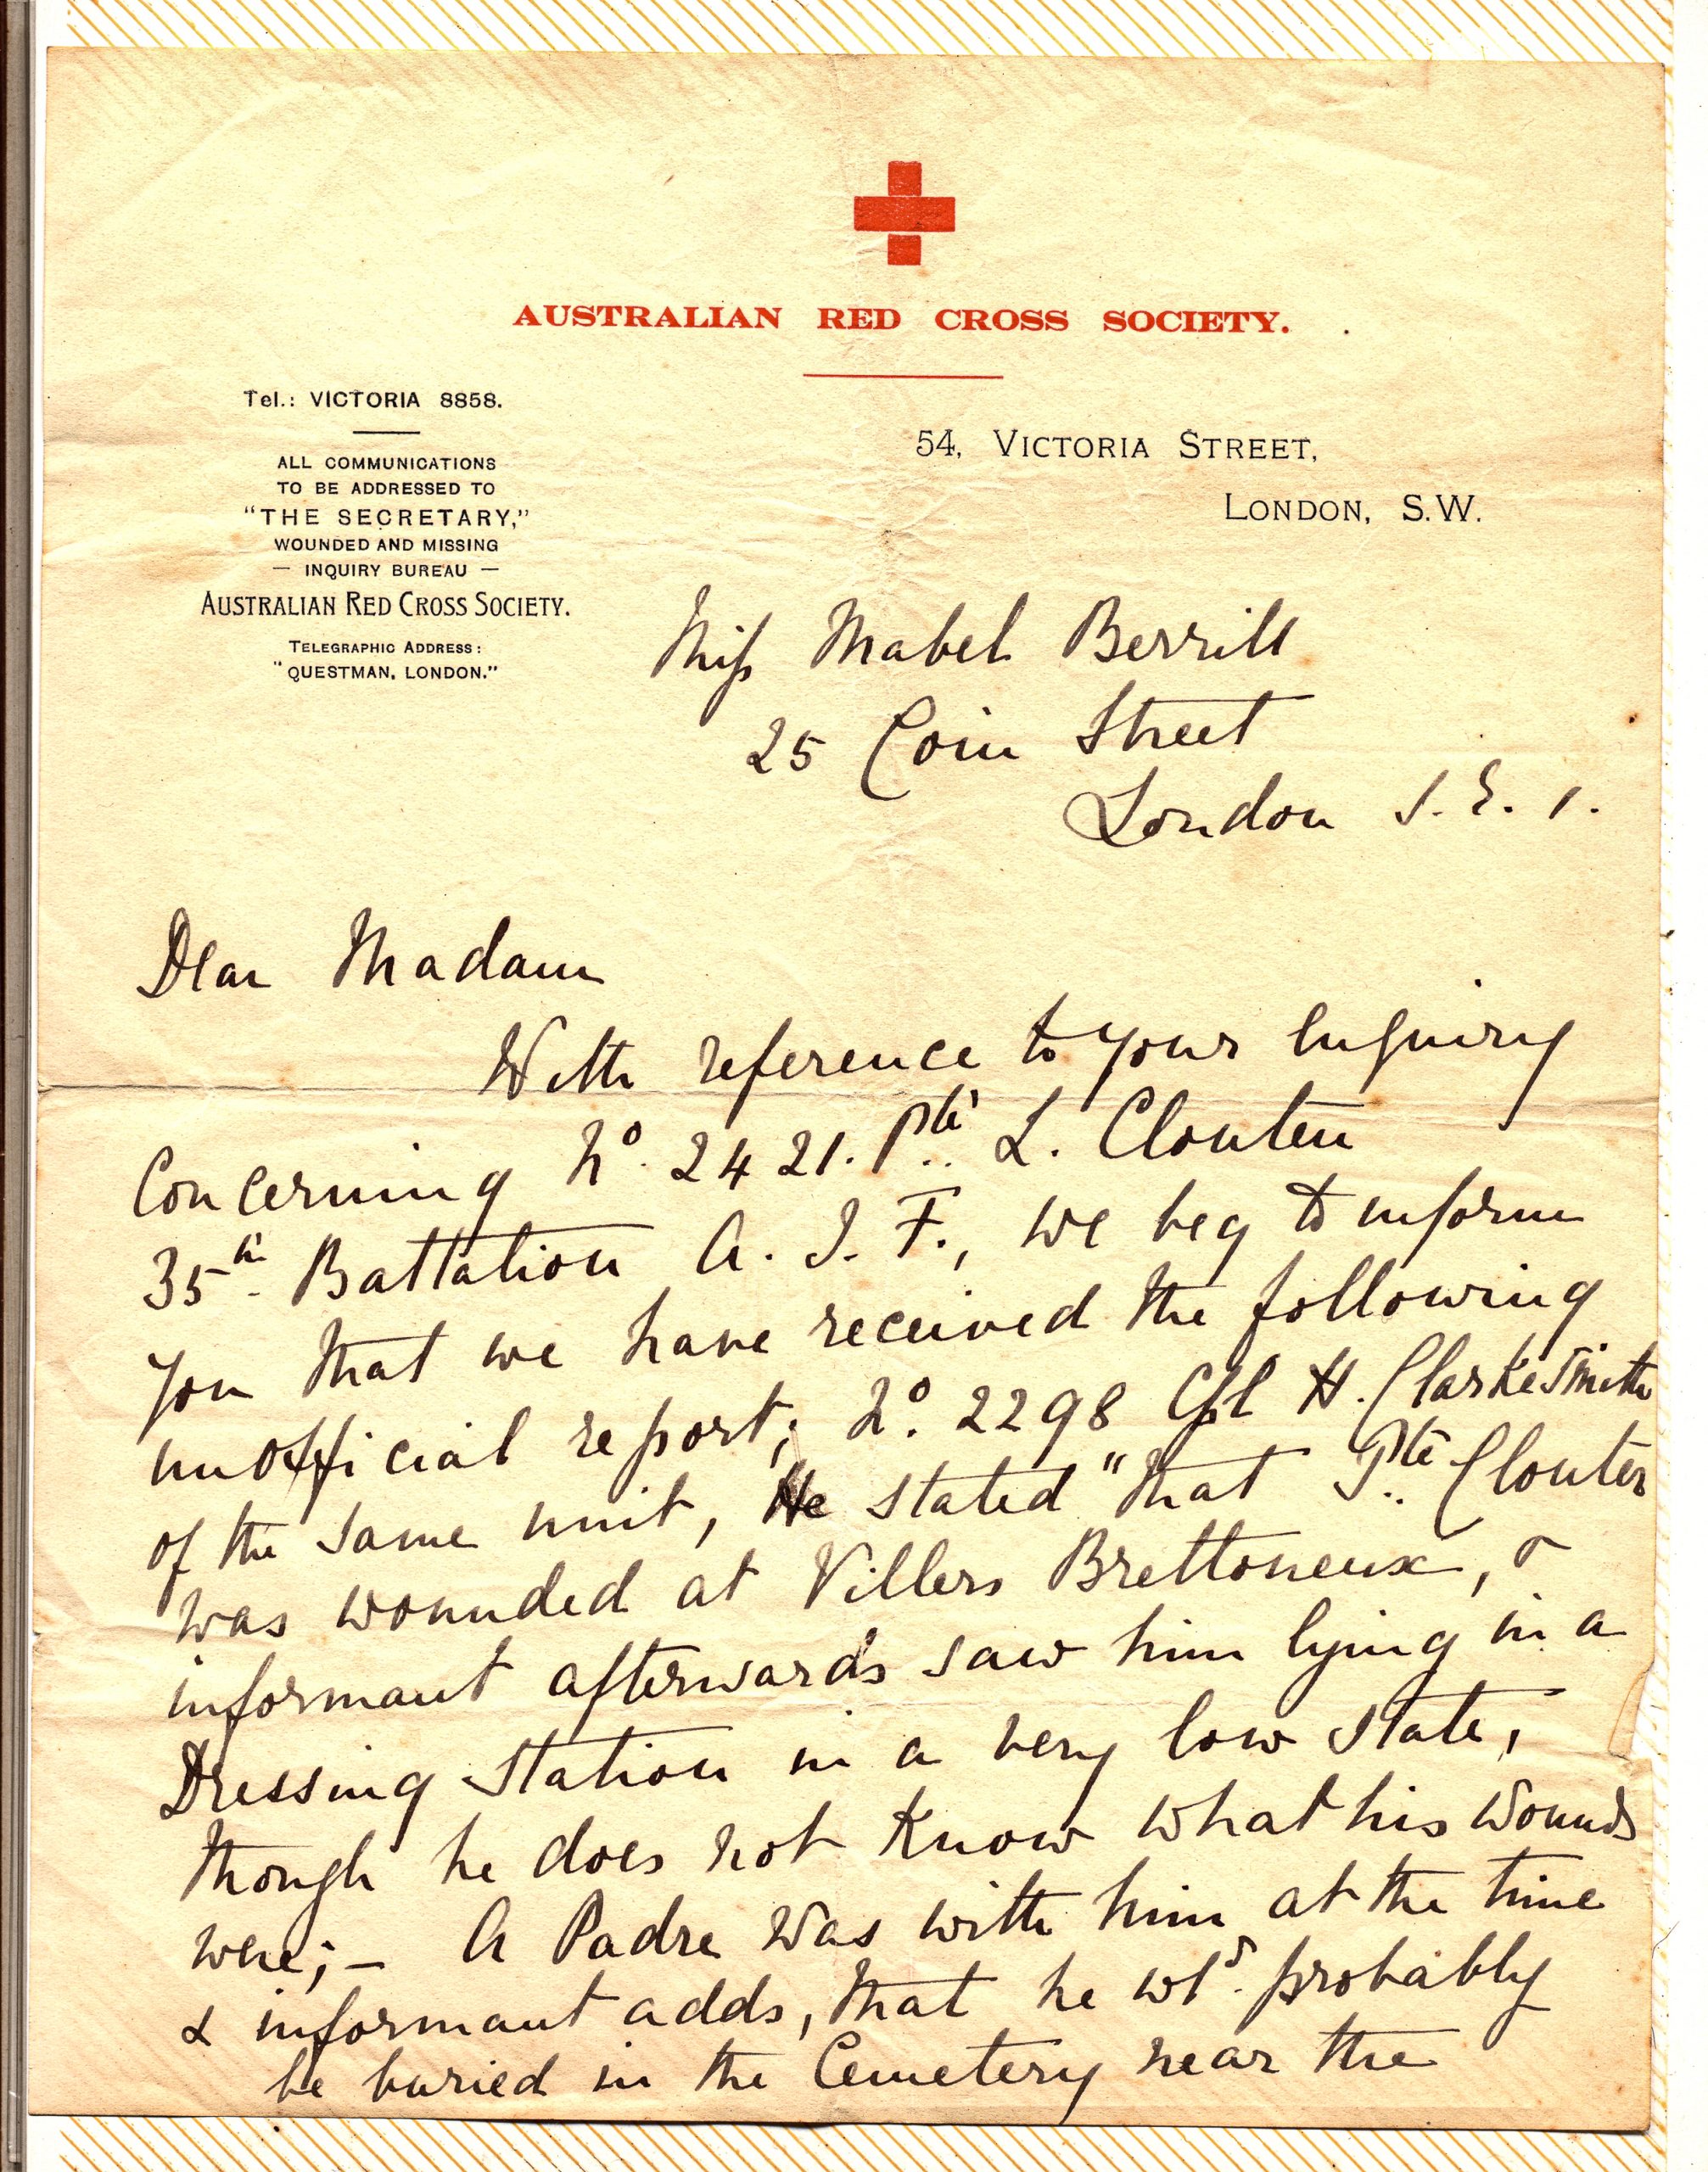 AUSTRALIAN RED CROSS SOCIETY.
Tel.: VICTORIA 8858.
ALL COMMUNICATIONS
TO BE ADDRESSED TO
"THE SECRETARY,"
WOUNDED AND MISSING
— INQUIRY BUREAU —
AUSTRALIAN RED CROSS SOCIETY.
TELEGRAPHIC ADDRESS:
"QUESTMAN, LONDON."
54, VICTORIA STREET,
LONDON, S.W.
Miss Mabel Berrill
25 Coin Street
London S.E. 1.
Dear Madam
With reference to your Enquiry
Concerning No. 2421. Pte. L. Clouten
35th Battalion A. I. F., we beg to inform
you that we have received the following
unofficial report; No. 2298 Cpl H. Clarke Smith
of the same unit, He stated "that Pte. Clouten
was wounded at Villers Brettoneux, &
informant afterwards saw him lying in a
Dressing Station in a very low state,
though he does not know what his wounds
were; - A Padre was with him at the time
& informant adds, that he wld. probably
be buried in the Cemetery near the